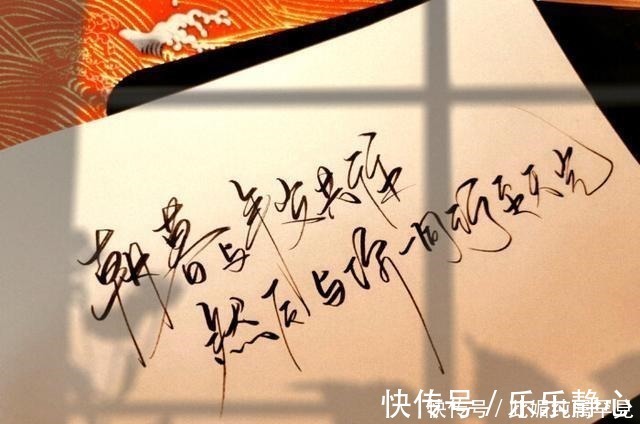 朝暮与年岁共往
然后与你一同行至天光
快传号 / 乐乐静心
快传号 /